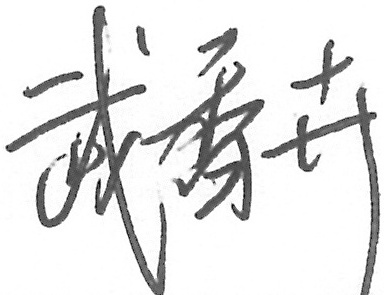 武秀卉